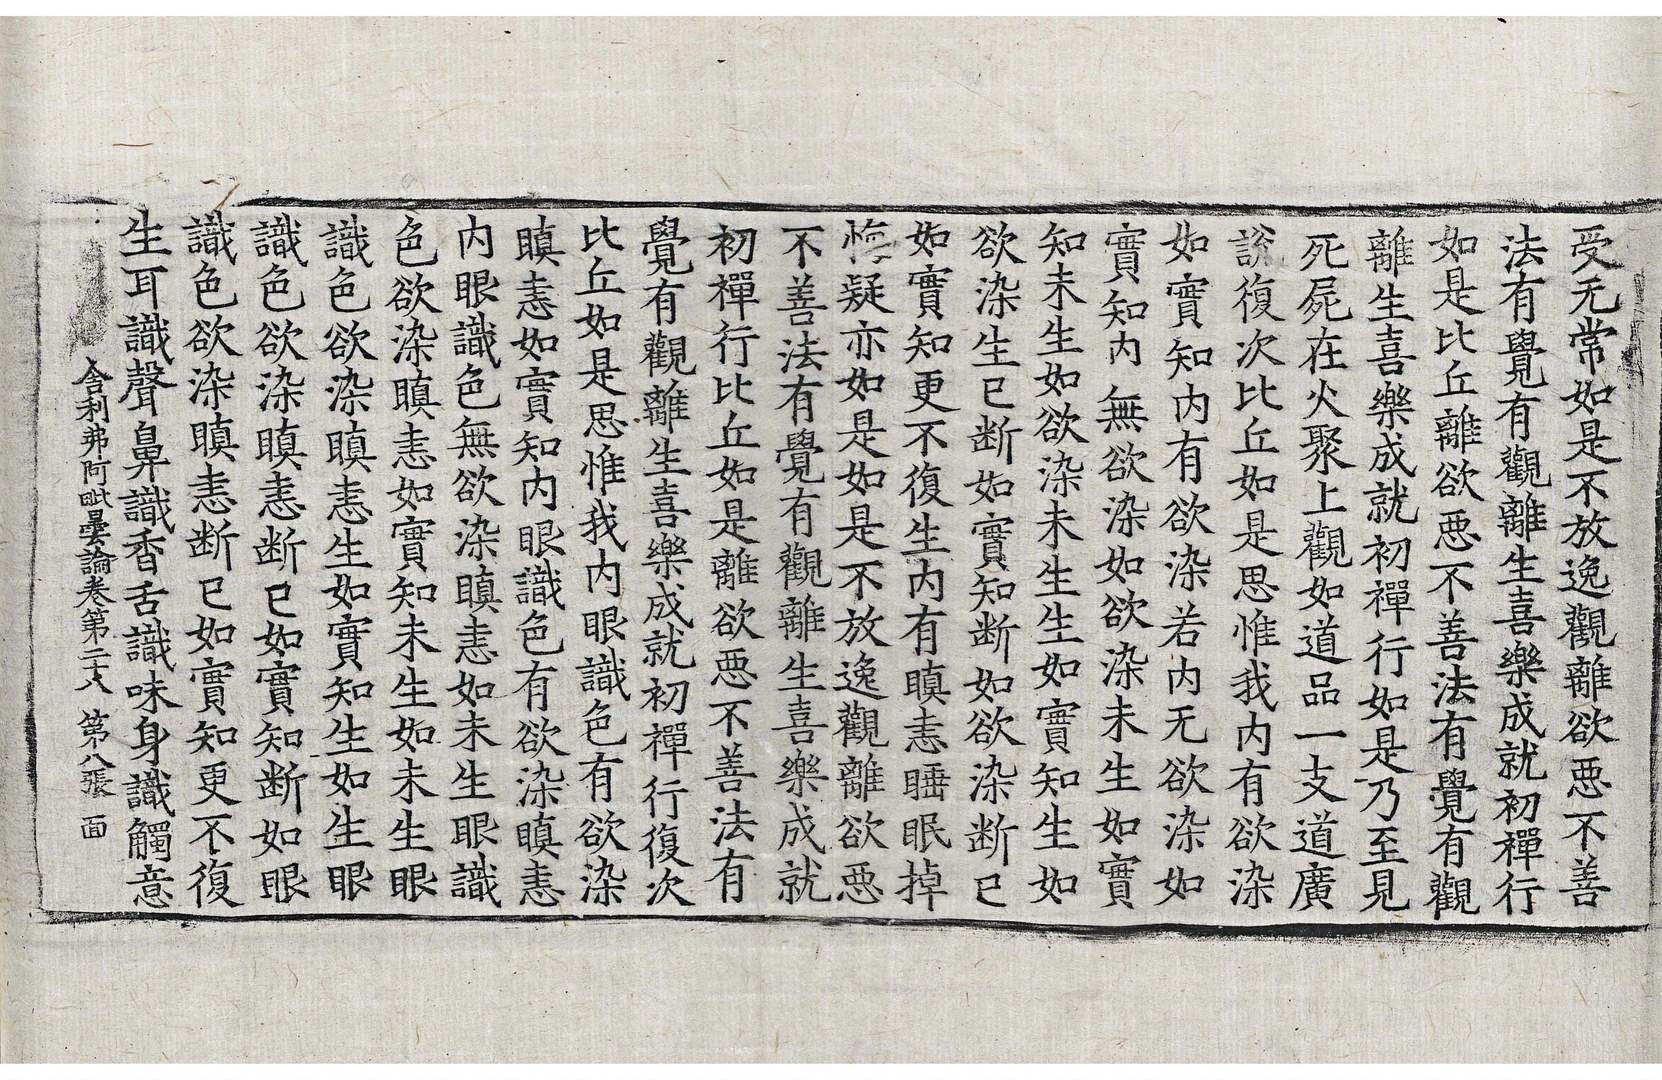 受无常如是不放逸觀離欲惡不善
法有覺有觀離生喜樂成就初禪行
如是比丘離欲惡不善法有覺有觀
離生喜樂成就初禪行如是乃至見
死屍在火聚上觀如道品一支道廣
說復次比丘如是思惟我內有欲染
如實知內有欲染若內无欲染如
實知內無欲染如欲染未生如實
知未生如欲染未生生如實知生如
欲染生已断如實知断如欲染断已
如實知更不復生內有瞋恚睡眠掉
悔疑亦如是如是不放逸觀離欲惡
不善法有覺有觀離生喜樂成就
初禪行比丘如是離欲惡不善法有
覺有觀離生喜樂成就初禪行復次
比丘如是思惟我內眼識色有欲染
瞋恚如實知內眼識色有欲染瞋恚
內眼識色無欲染瞋恚如未生眼識
色欲染瞋恚如實知未生如未生眼
識色欲染瞋恚生如實知生如生眼
識色欲染瞋恚断已如實知断如眼
識色欲染瞋恚断已如實知更不復
生耳識聲鼻識香舌識味身識觸意
舍利弗阿毗曇論卷第二十八 第八張 面